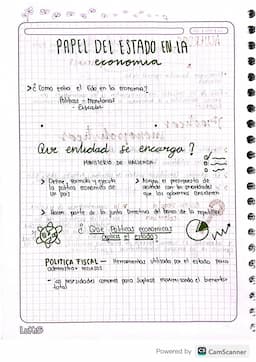 PAPEL DEL ESTADO EN LA
economía
> ¿ Como entra el Edo en la economía?
Políticas - Monetarias
Que entidad se encarga?
MINISTERIO DE HACIENDA
> Define, formula y ejecuta
la política económica de
un país
> Asigna el presupuesto de
acuerdo con las prioridades
que los gobiernos consideren
> Hacen parte de la junta directiva del banco de la republica
¿ Qué Políticas económicas
aplica el estado?
POLITICA FISCAL - Herramientas utilizada por el estado para
administrar recursos
total
Powered by CS CamScanner